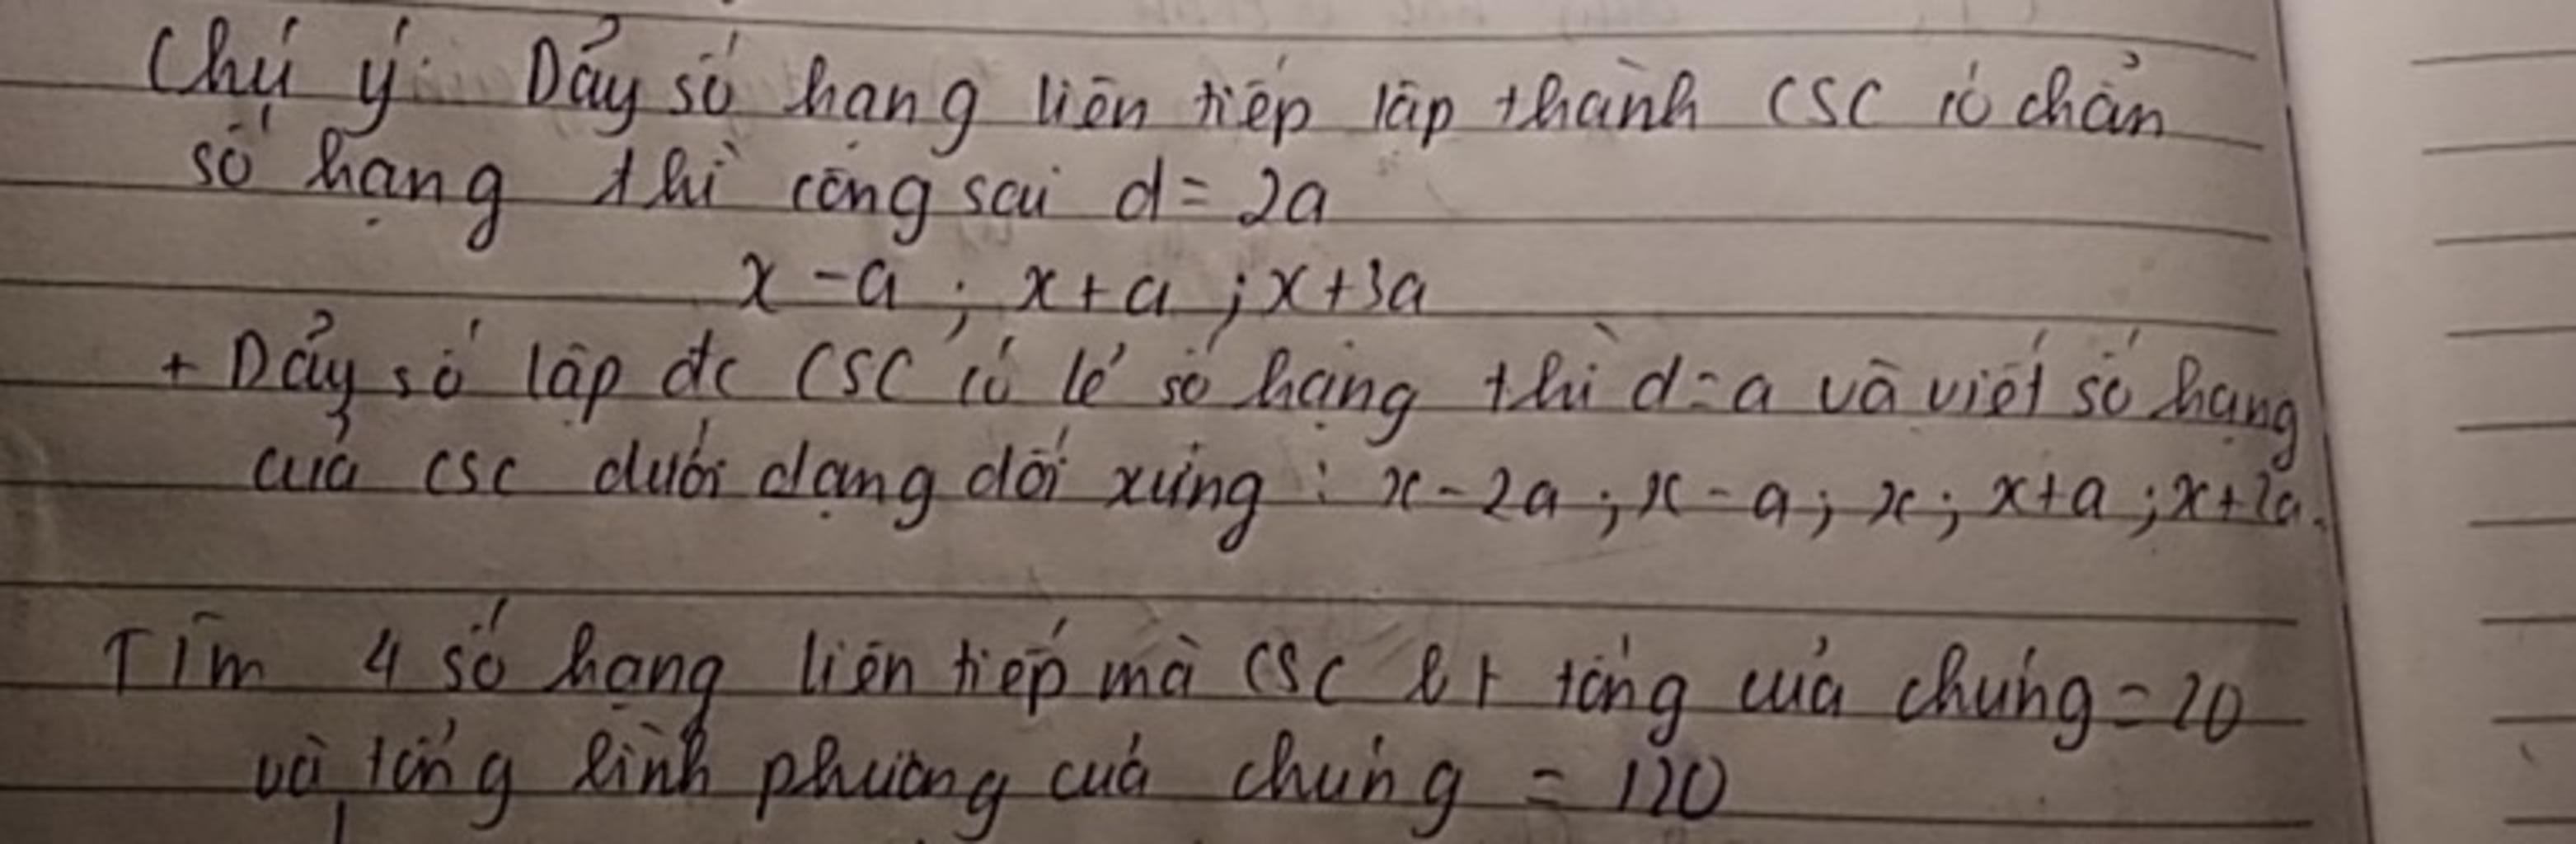 Chú ý: Dảy số hạng liên tiếp lập thành CSC có chẳn
số hạng thì công sai d = 2a
x - a ; x + a ; x + 3a
+ Dảy số lập đc CSC có lẻ số hạng thì d = a và viết số hạng
của CSC dưới dạng đối xứng : x - 2a ; x - a ; x ; x + a ; x + 2a.
Tìm 4 số hạng liên tiếp mà CSC bt tổng của chúng = 20
và tổng bình phương của chúng = 120